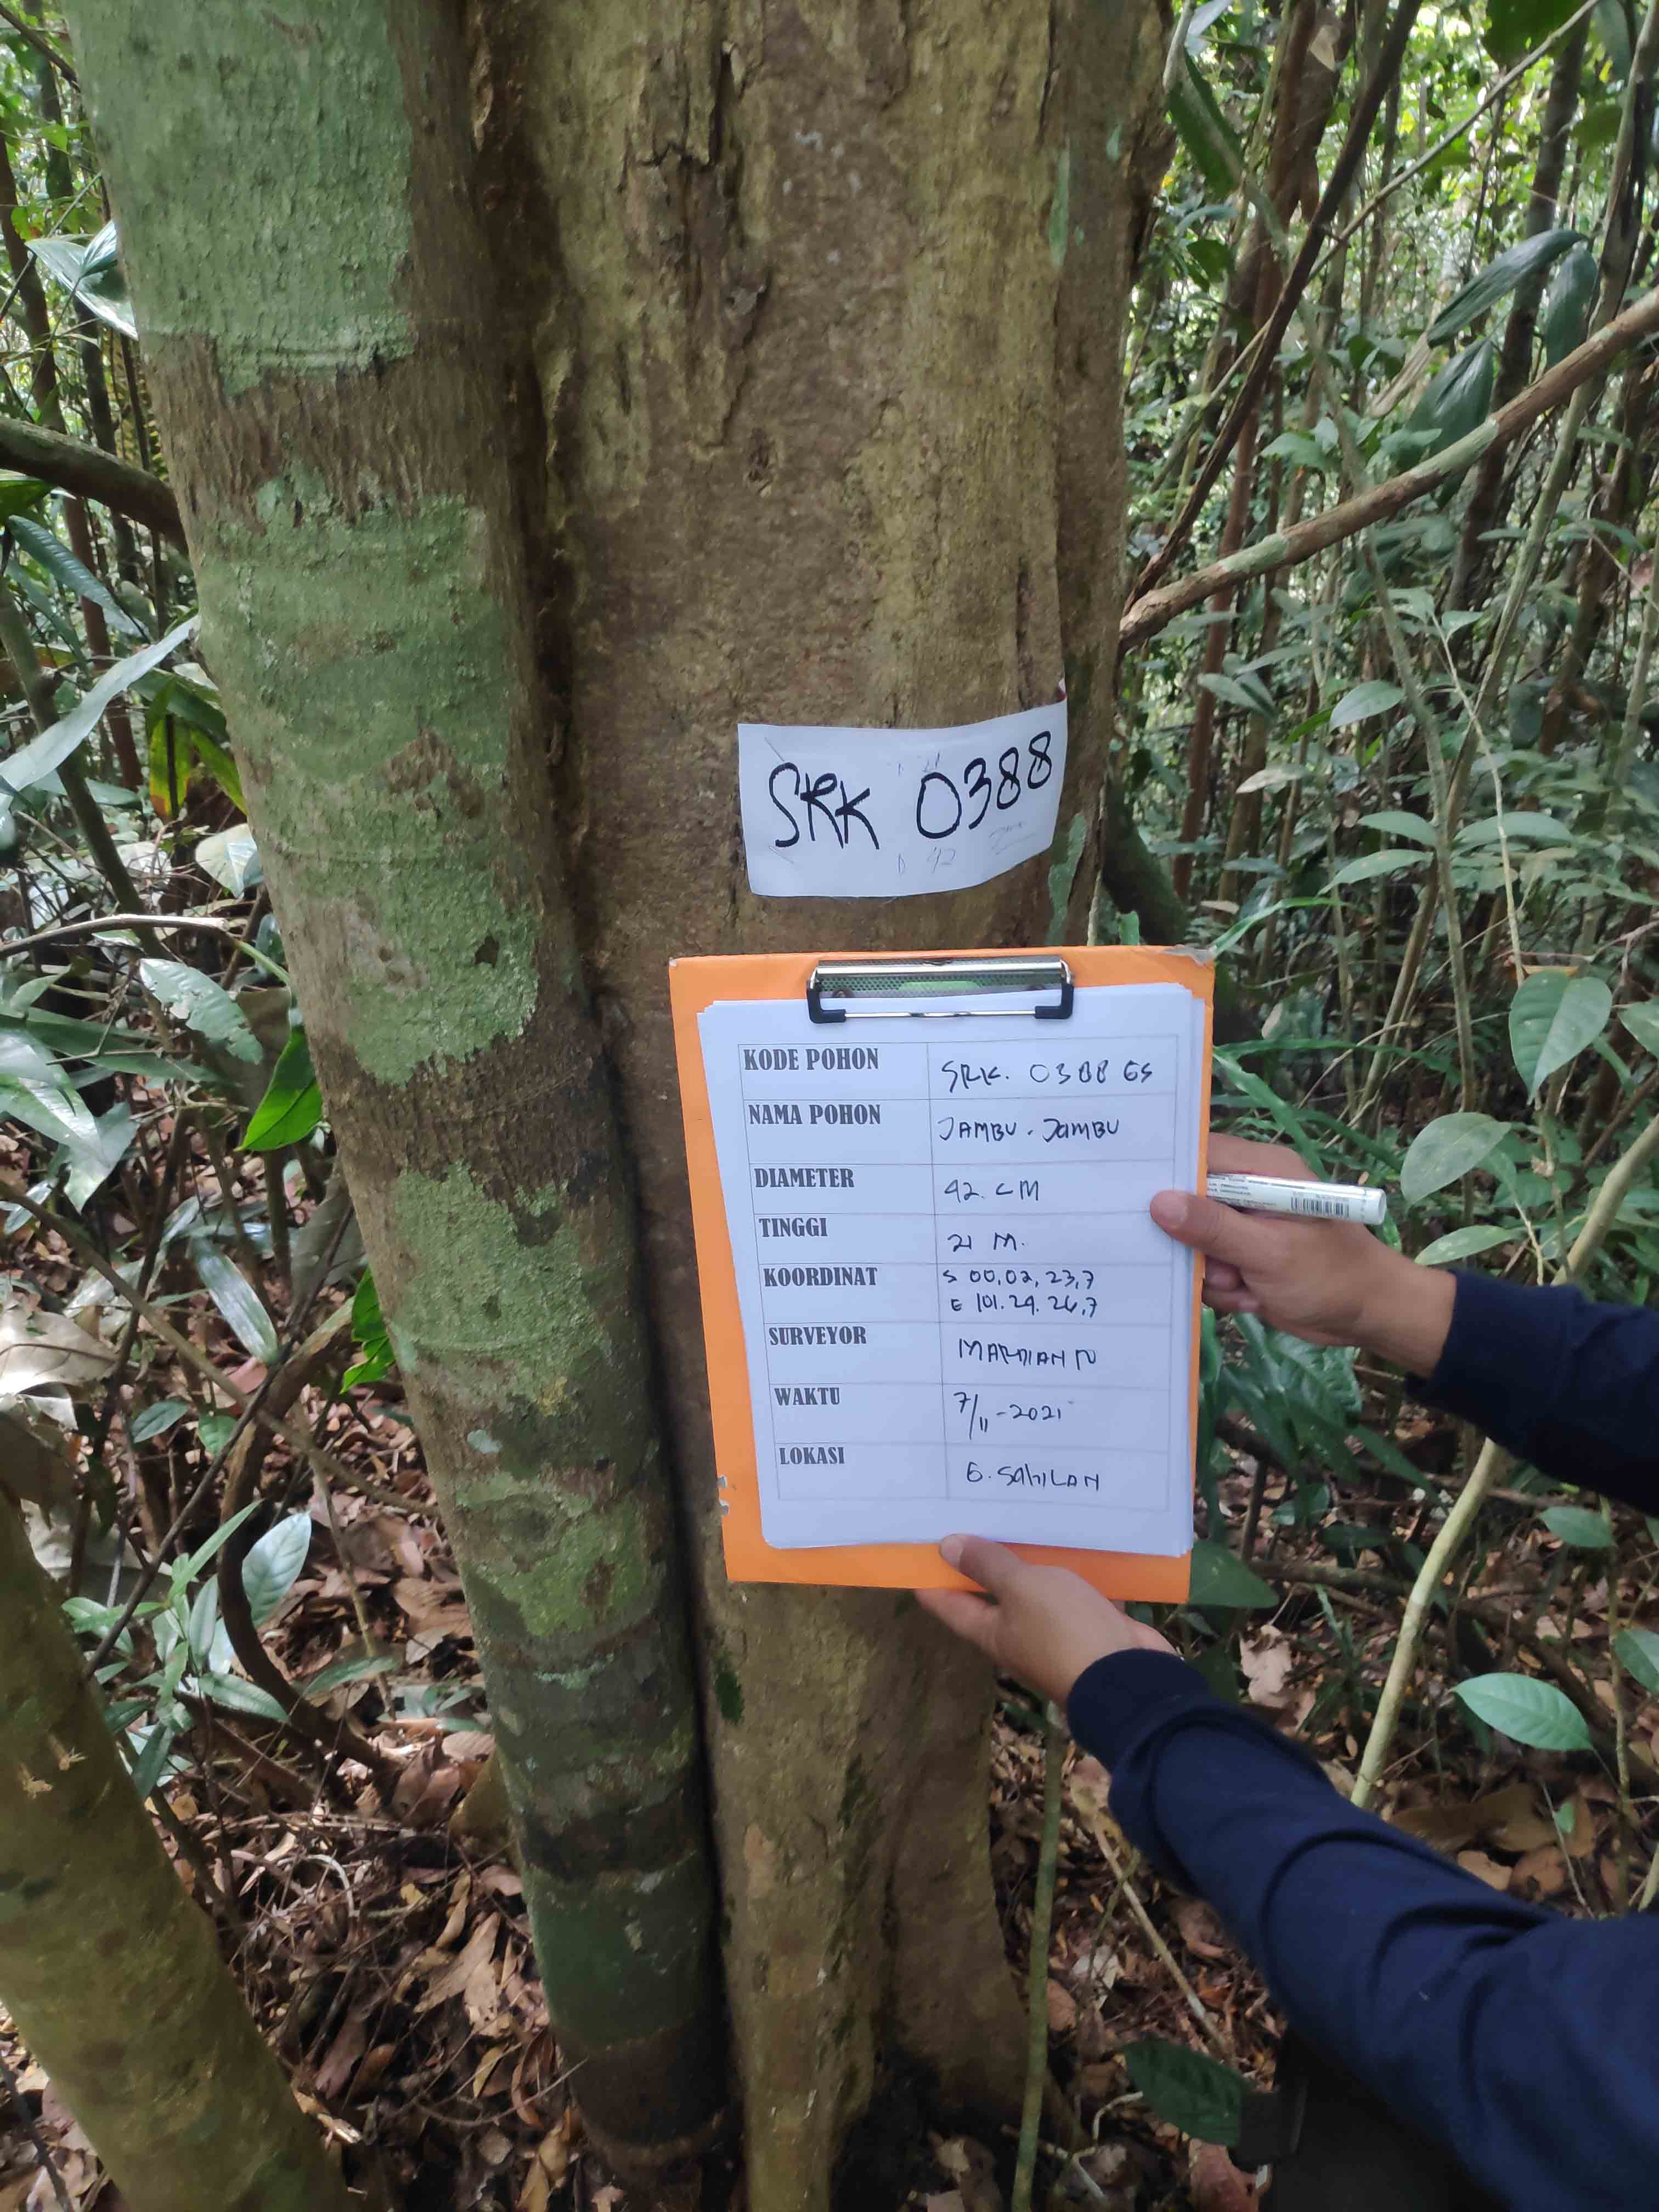 SRK 0388
KODE POHON SRK. 0388 GS
NAMA POHON JAMBU. JAMBU
DIAMETER 42. CM
TINGGI 21 M.
KOORDINAT S 00,02,23,7
E 101.29.26,7
SURVEYOR
WAKTU 7/11-2021
LOKASI G. SAHILAN